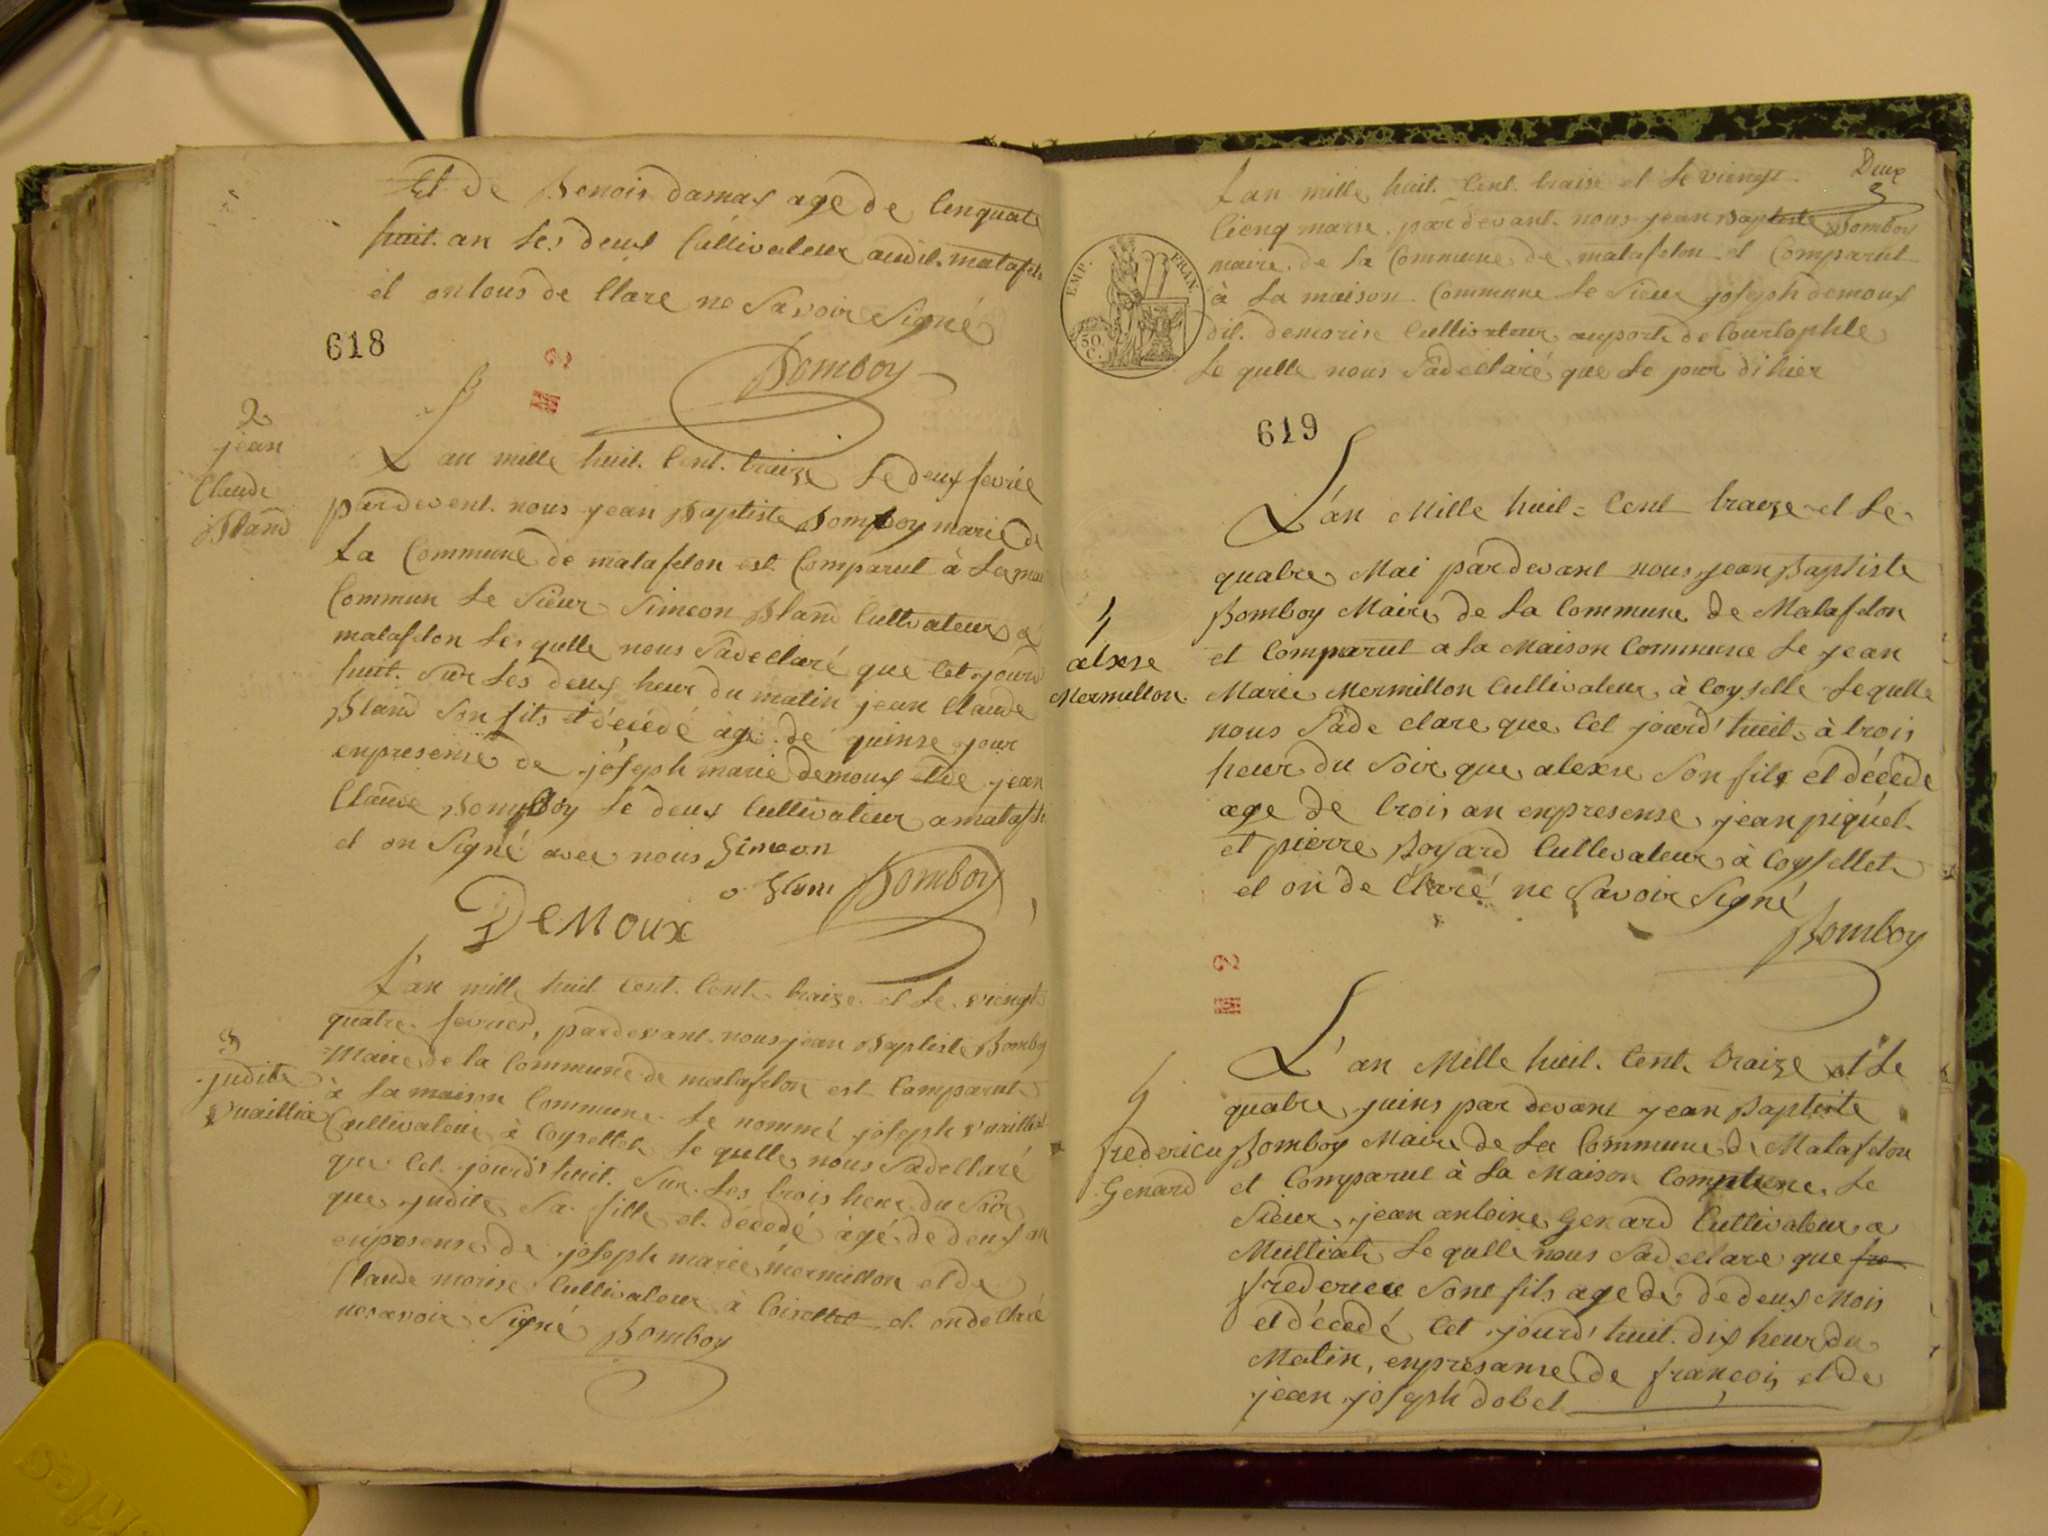 Et de Benois damas age de cenquate
huit an les deux Cultivateur audit matafelo
et on tous de Clare ne Savoir Signé
618
Bomboy
2
jean
Claude
Bland
L'an mille huit Cent traize le deux fevrié
pardevent nous jean Baptiste Bomboy marie de
la Commune de matafelon est Comparut à la mai
Commun le Sieur Simeon Bland Cultivateur a
matafelon le qulle nous Sadeclaré que Cet jourd
huit Sur les deux heur du matin jean Claude
Bland Son fils et décédé agé de quinse jour
enpresense de joseph marie demoux et de jean
Claude Bomboy le deux Cultivateur a matafel
et on Signé avec nous Simeon
Blanc Bomboy
DeMoux
3
judite
Vuaillia
L'an mille huit Cent Cent traize et le viengt
quatre fevrier, pardevant nous jean Baptiste Bomboy
Maire de la Commune de matafelon est Comparut
à la maison Commune le nommé joseph vuaillat
Cultivateur à Coysellet le qulle nous Sadeclaré
que Cet jourd'huit Sur les trois heur du Soir
que judite Sa fille et décédé àgé de deux an
enpresense de joseph marie mermillon et de
Claude morise Cultivateur à Coisellet et on declaré
ne savoir Signé Bomboy
Deux
L'an mille huit Cent traise et le viengt
Cienq mars pardevant nous jean Baptiste Bomboy
maire de la Commune de matafelon et Comparut
à la maison Commune le Sieur joseph demoux
dit demorise Cultivateur auport de Courtophle
le qulle nous Sadeclaré que le jour dihier
EMP. FRAN.
50
C.
619
4
alexse
Mermillon
L'an Mille huit Cent traize et le
quatre Mai pardevant nous jean Baptiste
Bomboy Maire de la Commune de Matafelon
et Comparut a la Maison Commune le jean
Marie Mermillon Cultivateur à Coyselle lequlle
nous Sade clare que Cet jourd'huit à trois
heur du Soir que alexse Son fils et décédé
age de trois an enpresense jean piquet
et pierre Boyard Cultevateur à Coysellet
et on de Claré ne Savoir Signé
Bomboy
frederieu
Genard
L'an Mille huit Cent traize et le
quatre juins par devant jean Baptiste
Bomboy Maire de la Commune de Matafelon
et Comparut à la Maison Commune le
Sieur jean antoine Genard Cultivateur a
Mulliat le qulle nous Sadeclare que fre
frederieu Sont fils age de de deux Mois
et décedé Cet jourd'huit dix heur du
Matin, enpresanse de françois et de
jean joseph dobet